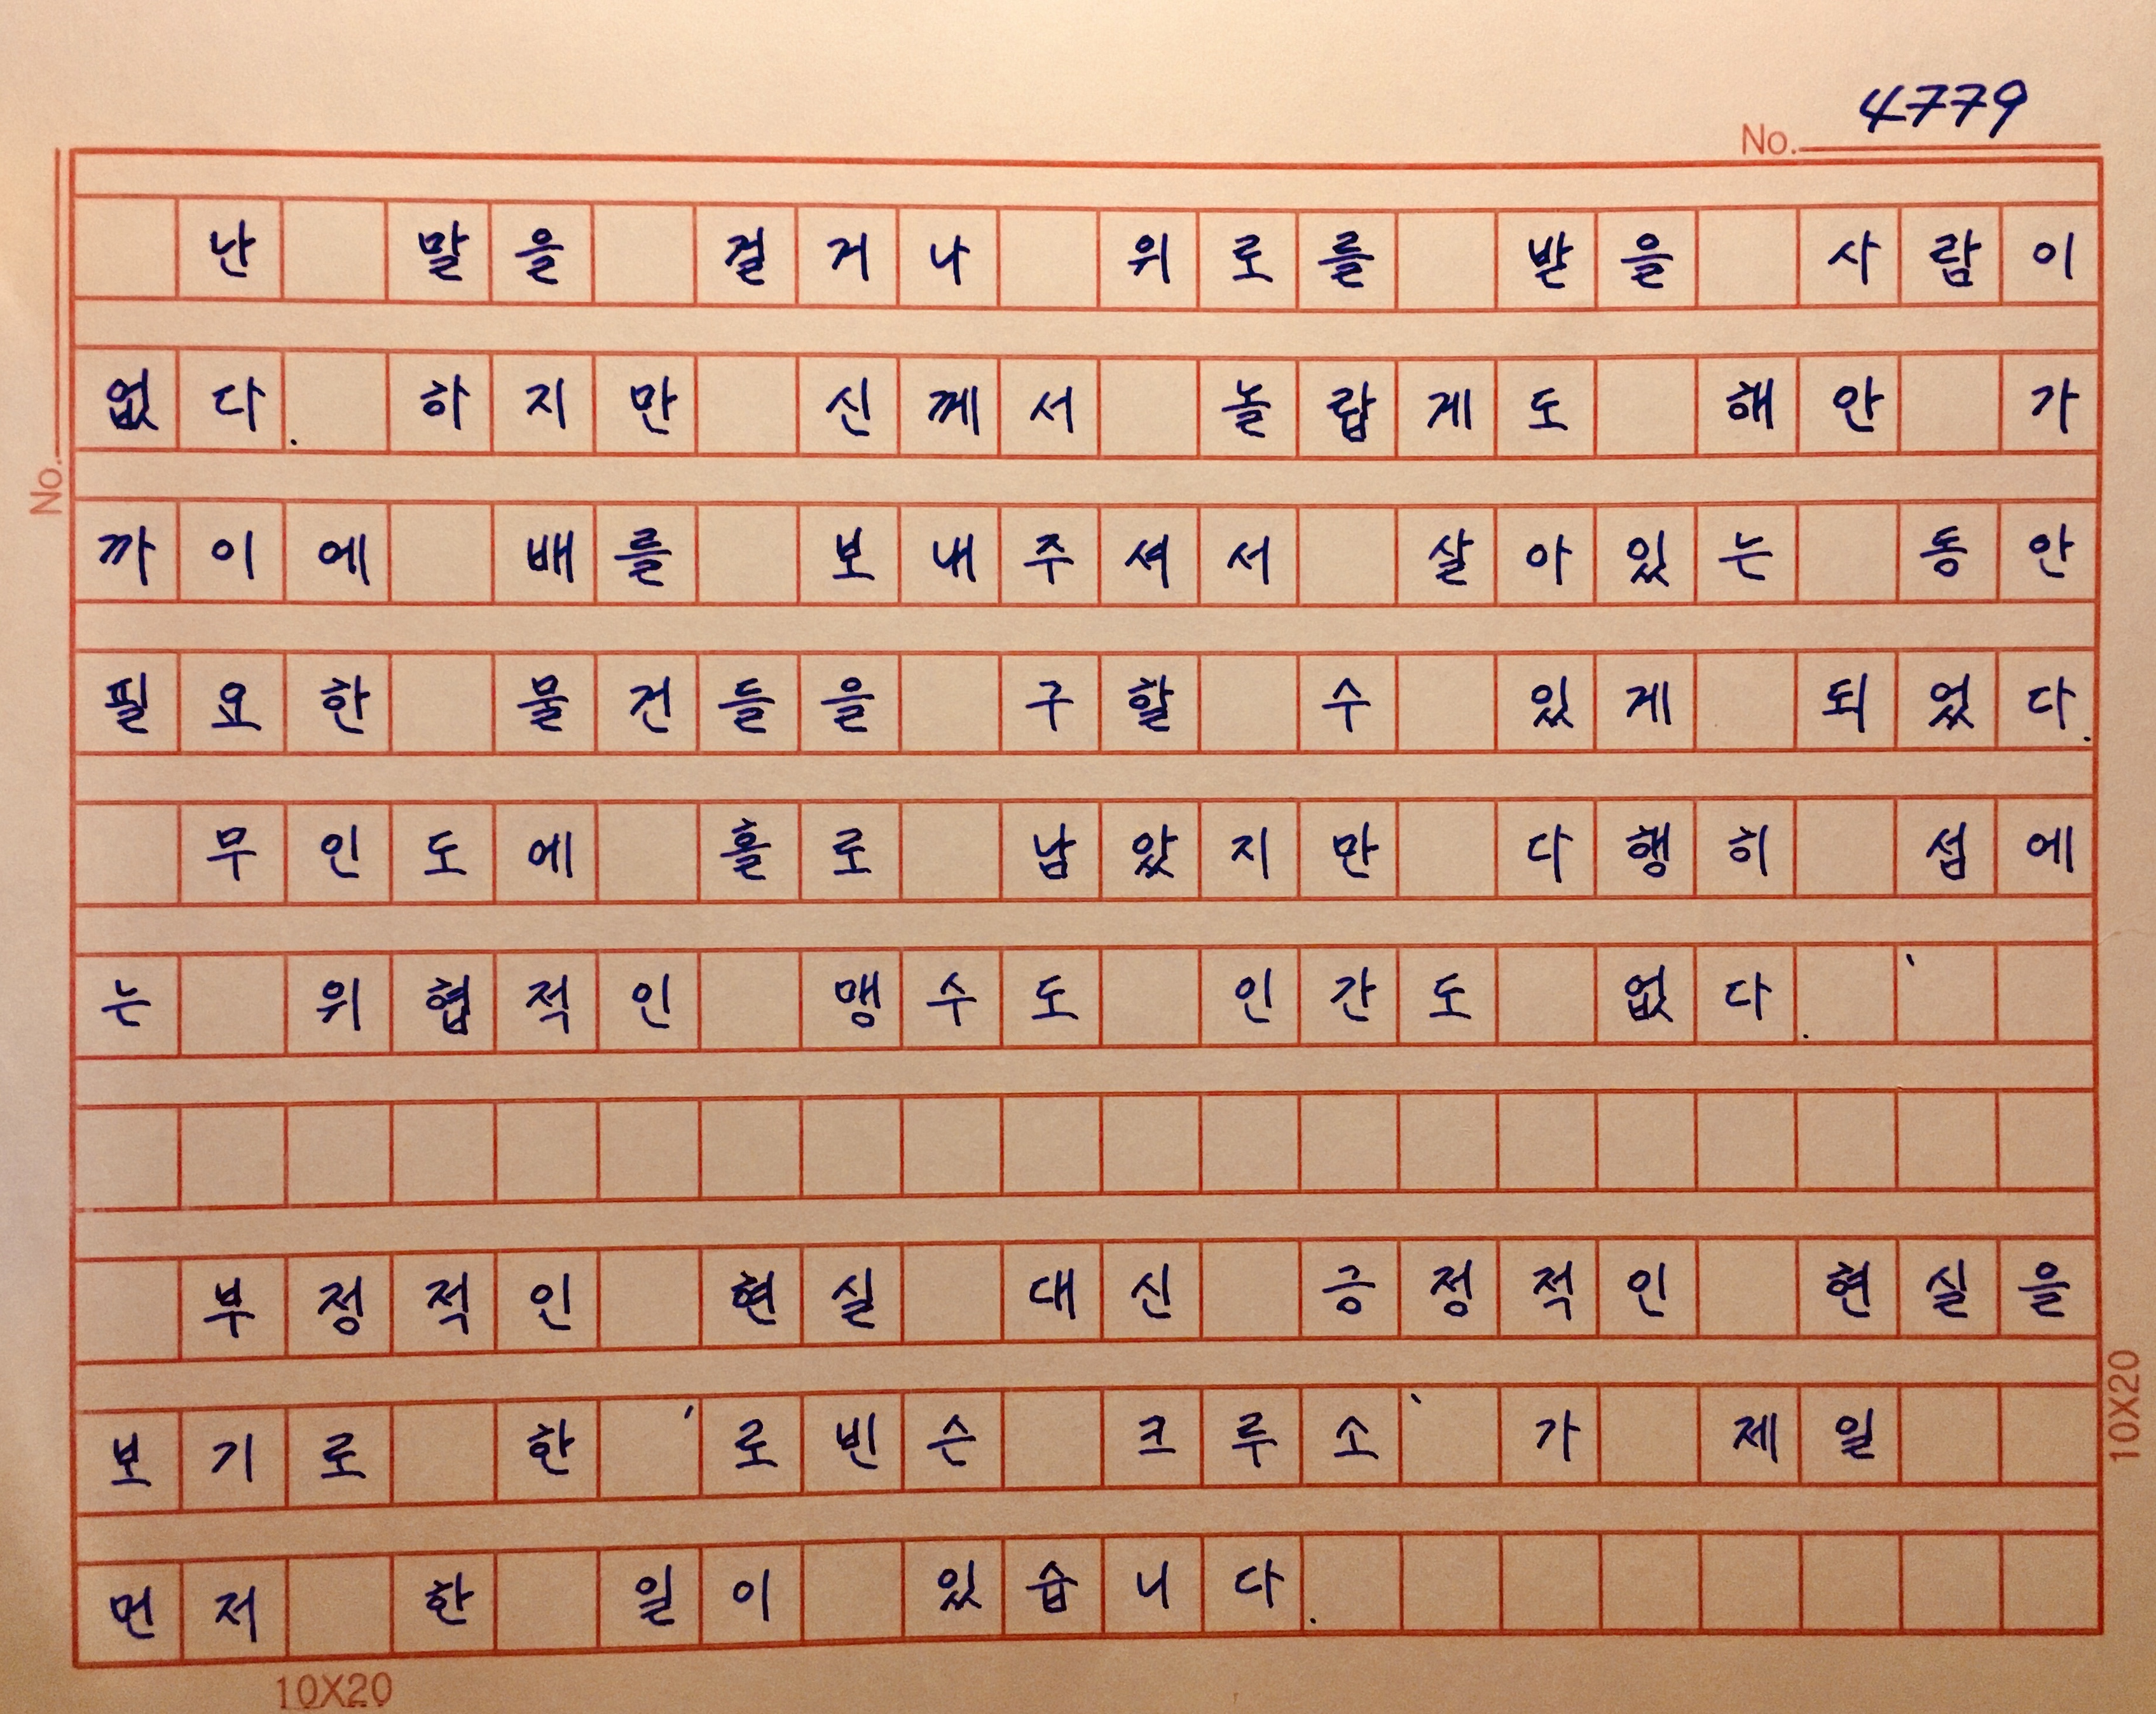 4779
No.
난 말을 걸거나 위로를 받을 사람이
없다. 하지만 신께서 놀랍게도 해안 가
까이에 배를 보내주셔서 살아있는 동안
No.
필요한 물건들을 구할 수 있게 되었다.
무인도에 홀로 남았지만 다행히 섬에
는 위협적인 맹수도 인간도 없다.
부정적인 현실 대신 긍정적인 현실을
보기로 한 '로빈슨 크루소' 가 제일
먼저 한 일이 있습니다.
10X20
10X20